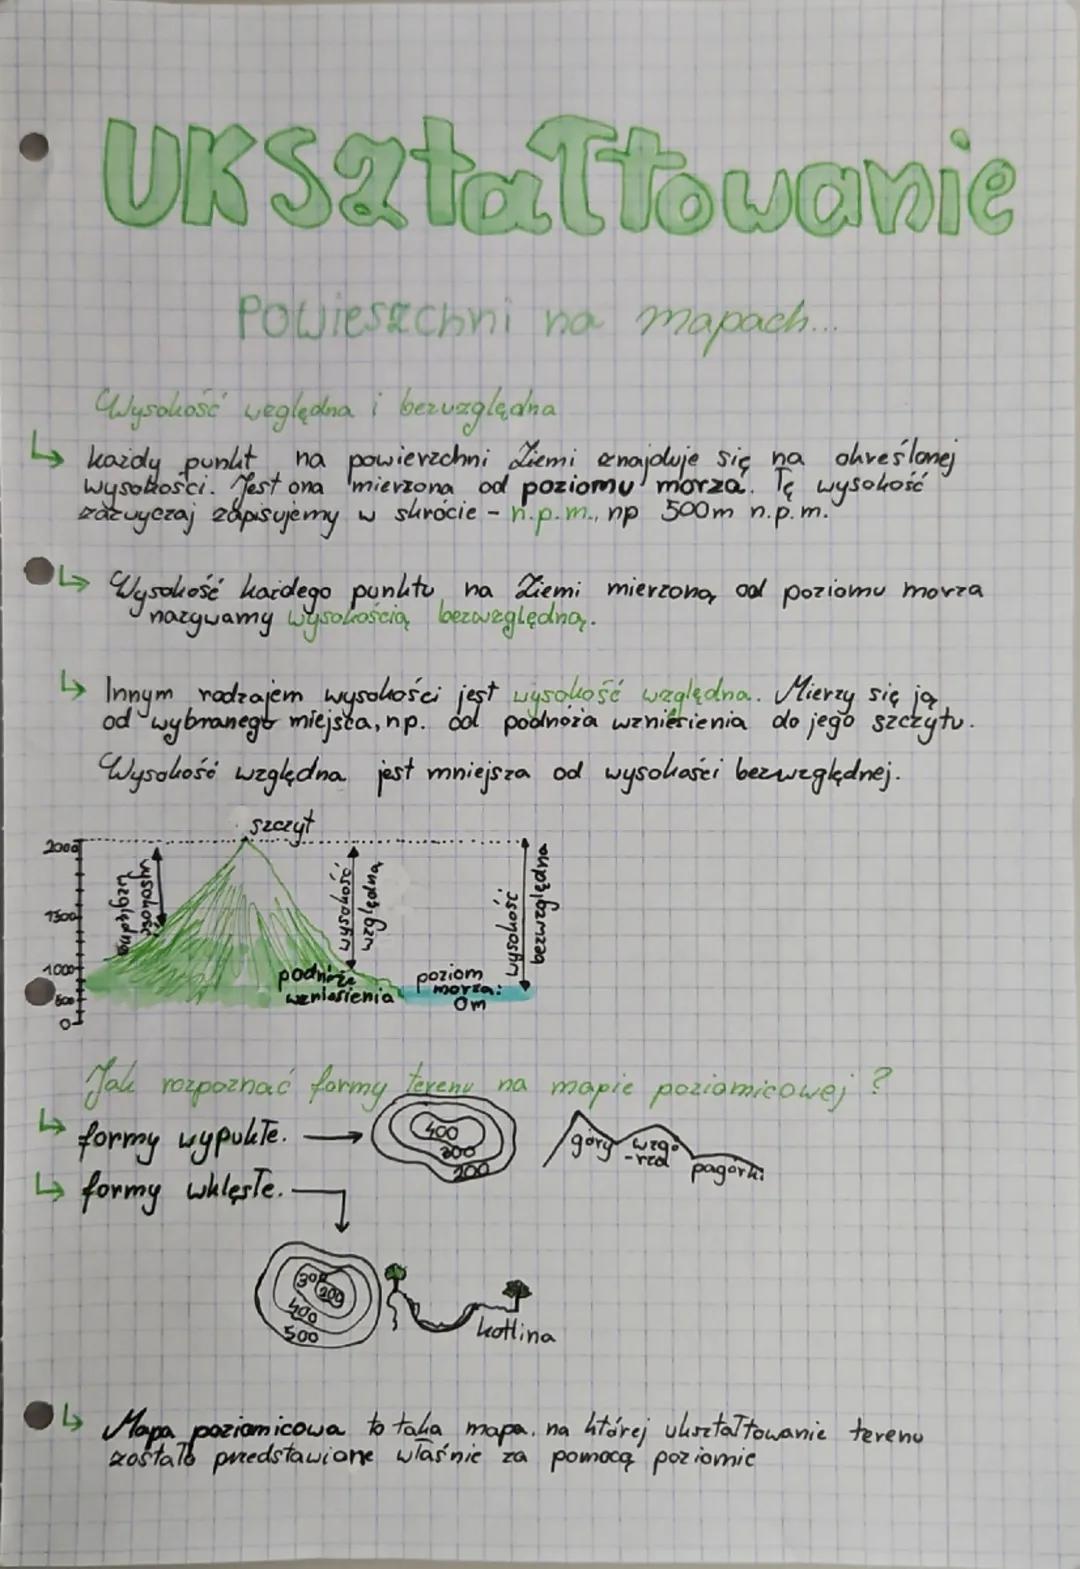 UKSztałtowanie
Powierzchni na mapach...
Wysokość względna i bezwzględna
każdy punkt na powierzchni Ziemi znajduje się na określonej
wysokości. Jest ona mierzona od poziomu morza. Tę wysokość
zazwyczaj zapisujemy w skrócie - n.p.m., np 500m n.p.m.
Wysokość każdego punktu na Ziemi mierzoną od poziomu morza
nazywamy wysokością bezwzględną.
Innym rodzajem wysokości jest wysokość względna. Mierzy się ją
od wybranego miejsca, np. od podnóża wzniesienia do jego szczytu.
Wysokość względna jest mniejsza od wysokości bezwzględnej.
szczyt
2000
1500
1000
500
0
wysokość
względna
wysokość
względna
wysokość
bezwzględna
podnóże
wzniesienia
poziom
morza:
0m
Jak rozpoznać formy terenu na mapie poziomicowej?
formy wypukłe.
400
300
200
góry
wzgó
-rza
pagórki
formy wklęsłe.
300
200
400
500
kotlina
Mapa poziomicowa to taka mapa, na której ukształtowanie terenu
zostało przedstawione właśnie za pomocą poziomic